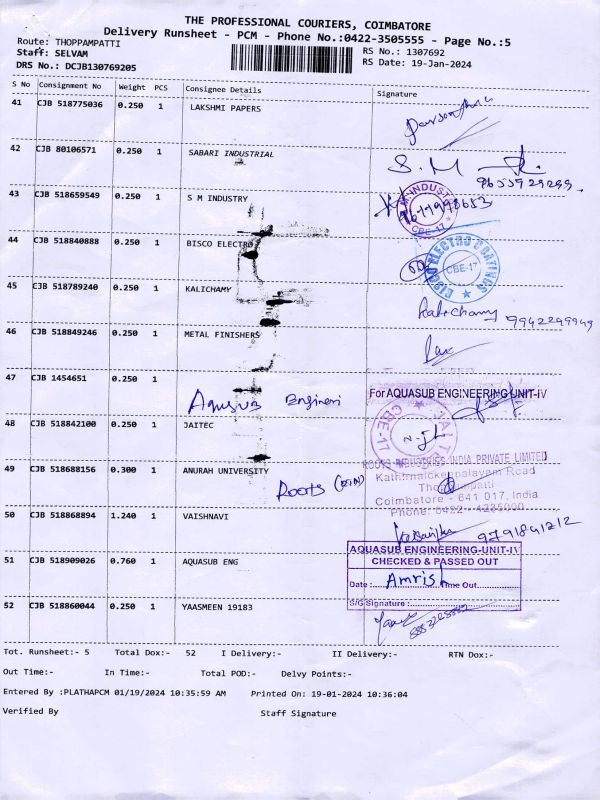 THE PROFESSIONAL COURIERS, COIMBATORE
Delivery Runsheet - PCM - Phone No.:0422-3505555 - Page No.:5
Route: THOPPAMPATTI
RS No.: 1307692
Staff: SELVAM
RS Date: 19-Jan-2024
DRS No.: DCJB130769205
S No Consignment No Weight PCS Consignee Details Signature
41 CJB 518775036 0.250 1 LAKSHMI PAPERS
42 CJB 80106571 0.250 1 SABARI INDUSTRIAL S.M
43 CJB 518659549 0.250 1 S M INDUSTRY
CBE-17
44 CJB 518840888 0.250 1 BISCO ELECTRO
CISCO ELECTRO COATINGS CBE-17
45 CJB 518789240 0.250 1 KALICHAMY Kalichamy 9942299949
46 CJB 518849246 0.250 1 METAL FINISHERS
47 CJB 1454651 0.250 1 Aqusub Engineri For AQUASUB ENGINEERING UNIT-IV
48 CJB 518842100 0.250 1 JAITEC
ROOTS INDUSTRIES INDIA PRIVATE LIMITED
49 CJB 518688156 0.300 1 ANURAH UNIVERSITY Roots
Kathirnaickenpalayam Road
Thoppampatti
Coimbatore - 641 017, India
Phone: 0422 - 4235000
50 CJB 518868894 1.240 1 VAISHNAVI 9791841212
AQUASUB ENGINEERING-UNIT-IV
CHECKED & PASSED OUT
51 CJB 518909026 0.760 1 AQUASUB ENG
Date : Amrish Time Out
S/G Signature :
52 CJB 518860044 0.250 1 YAASMEEN 19183
Tot. Runsheet:- 5 Total Dox:- 52 I Delivery:- II Delivery:- RTN Dox:-
Out Time:- In Time:- Total POD:- Delvy Points:-
Entered By :PLATHAPCM 01/19/2024 10:35:59 AM Printed On: 19-01-2024 10:36:04
Verified By Staff Signature